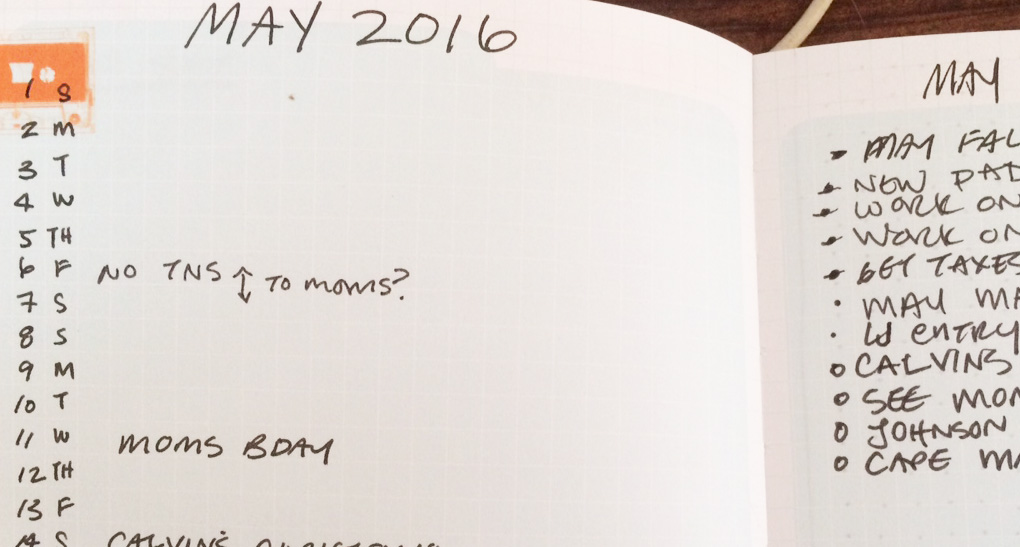 MAY 2016
1 S
2 M
3 T
4 W
5 TH
6 F NO TNS ↕ TO MOMS?
7 S
8 S
9 M
10 T
11 W MOMS BDAY
12 TH
13 F
14 S CALVINS
MAY
MAY FAL
NEW PAD
WORK ON
WORK ON
GET TAXES
MAY MA
ENTRY
CALVINS
SEE MOM
JOHNSON
CAPE MA